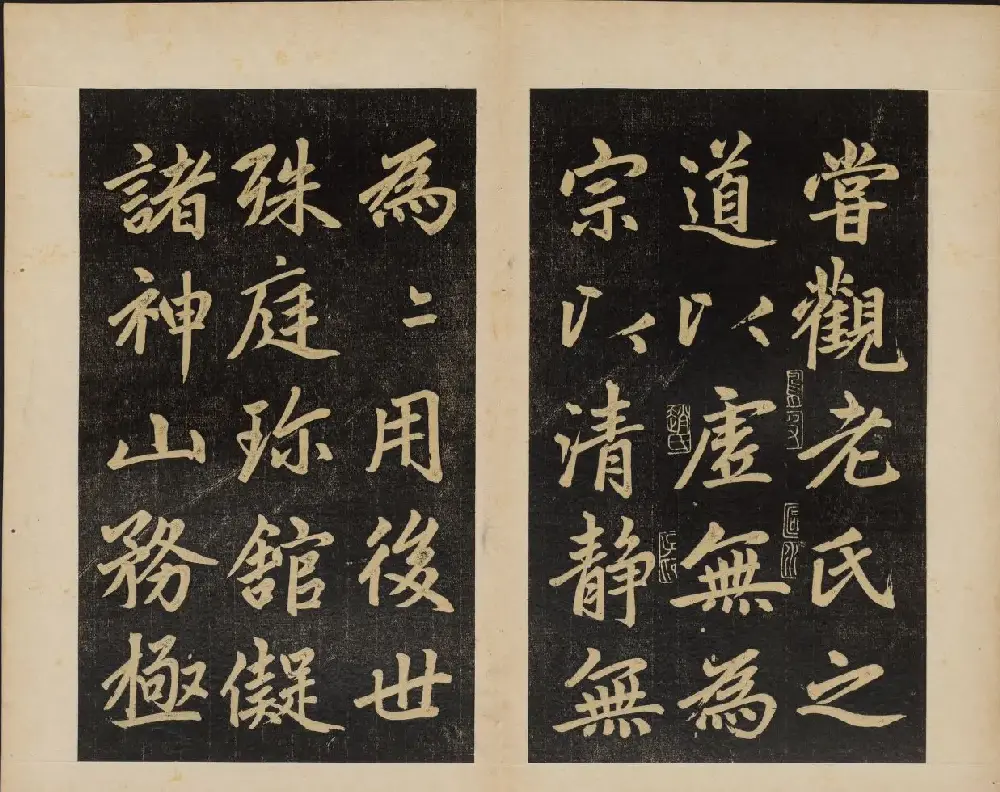 嘗觀老氏之
道以虛無為
宗以清靜無
為〻用後世
殊庭珎舘儗
諸神山務極